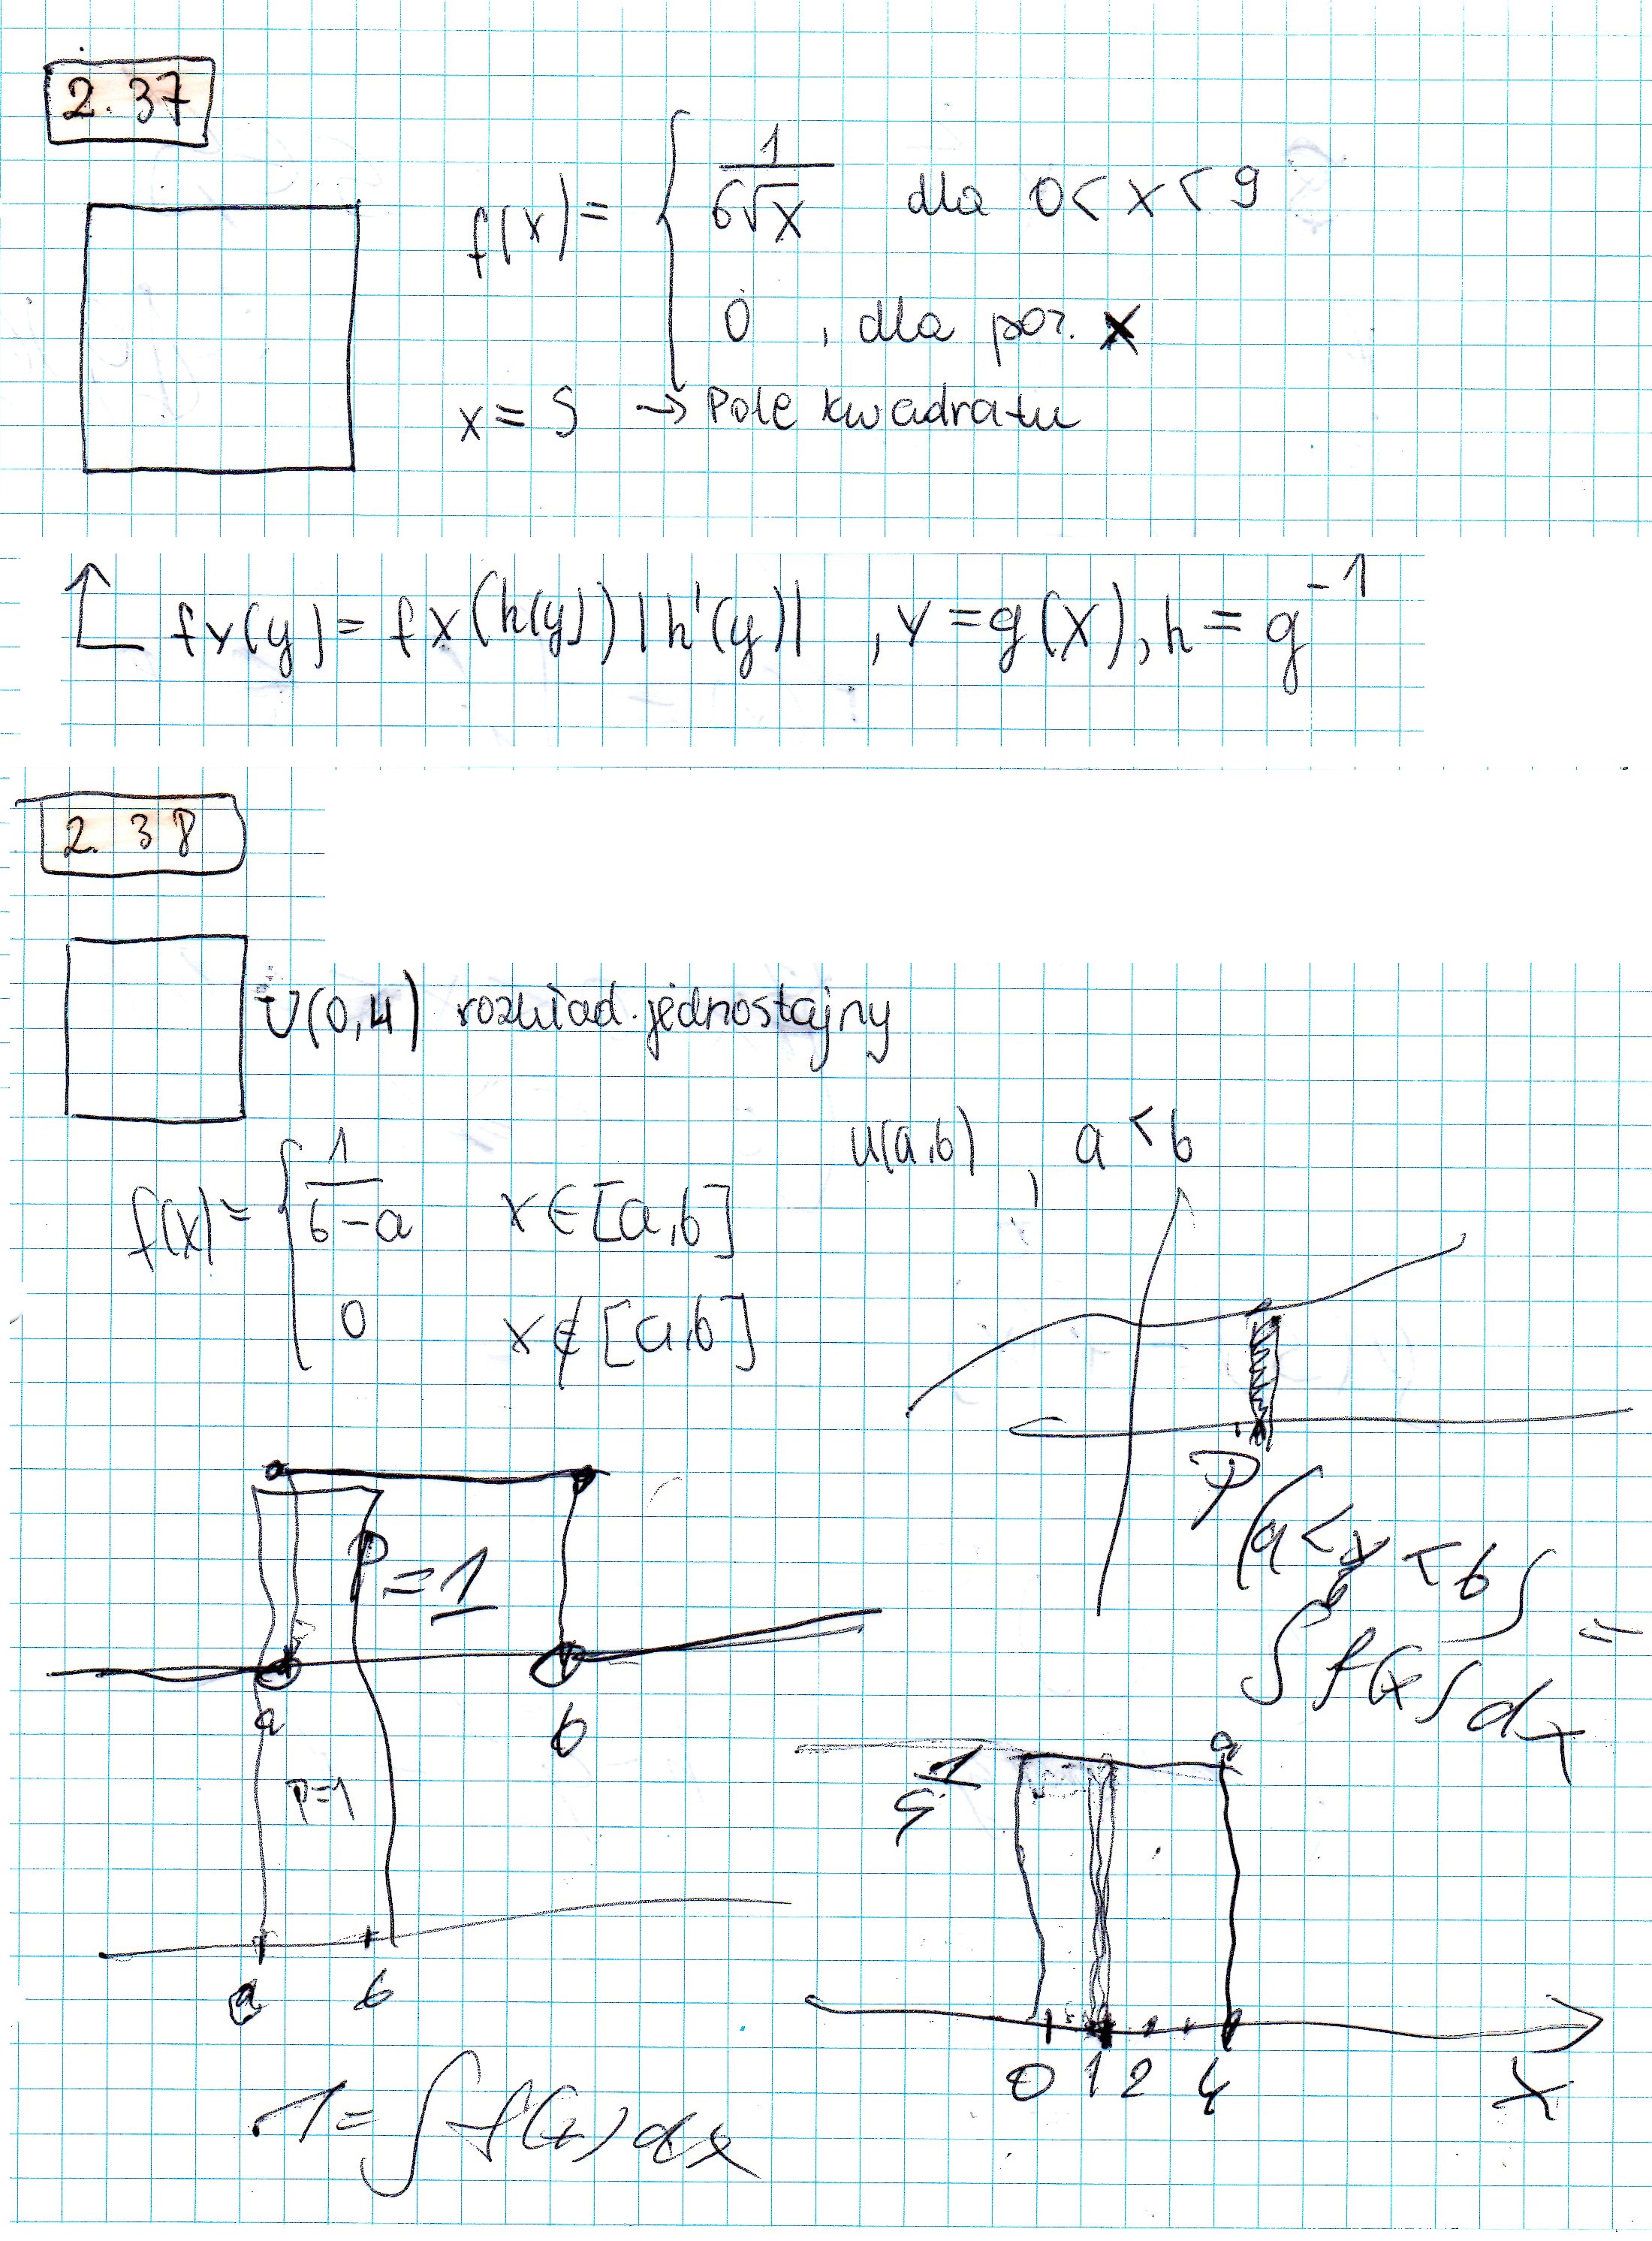 2.37
f(x) = { 1/(6√x) dla 0 < x < 9
0 , dla poz. x
x = S → Pole kwadratu
fy(y) = fx(h(y)) |h'(y)| , Y = g(X), h = g^-1
2.38
U(0,4) rozkład jednostajny
U(a,b) , a < b
f(x) = { 1/(b-a) x ∈ [a,b]
0 x ∉ [a,b]
P = 1
P(a < x < b) =
∫ f(x) dx
a b
P=1
1/4
a b
0 1 2 4 X
1 = ∫ f(x) dx